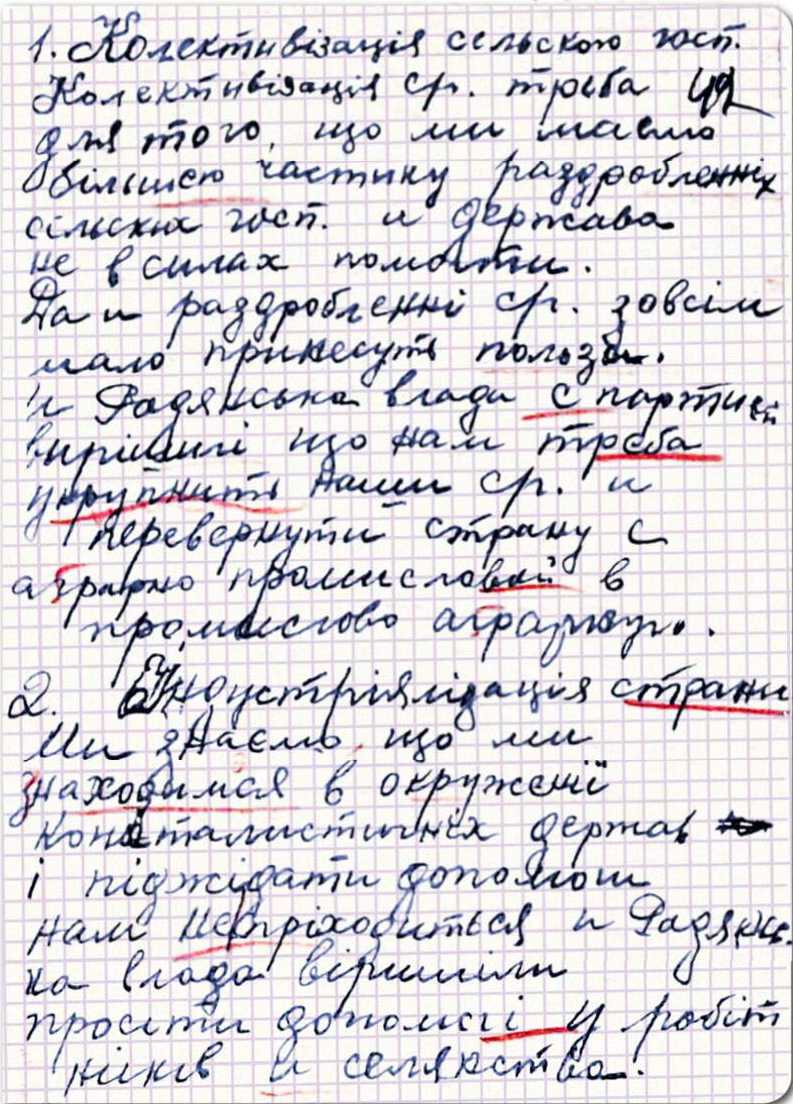 1. Колективізація сельского госп.
Колективізація ср. треба
для того, що ми маємо
більшсю частину раздробленніх
сільскіх госп. и держава
не в силах помогти.
Да и раздробленні ср. зовсім
мало принесуть користі
и Радянська влада с партиєй
вирішилі що нам треба
укрупнить наши ср. и
перевернути страну с
аграрно промисловой в
промислово аграрную.
2. Індустріялізація страни
Ми знаємо, що ми
знаходимся в окруженії
капіталистичніх держав
і піджідати допомоги
нам неприходиться и Радянсь-
ка влада вірішили
просити допомогі у робіт
ніків и селянства.